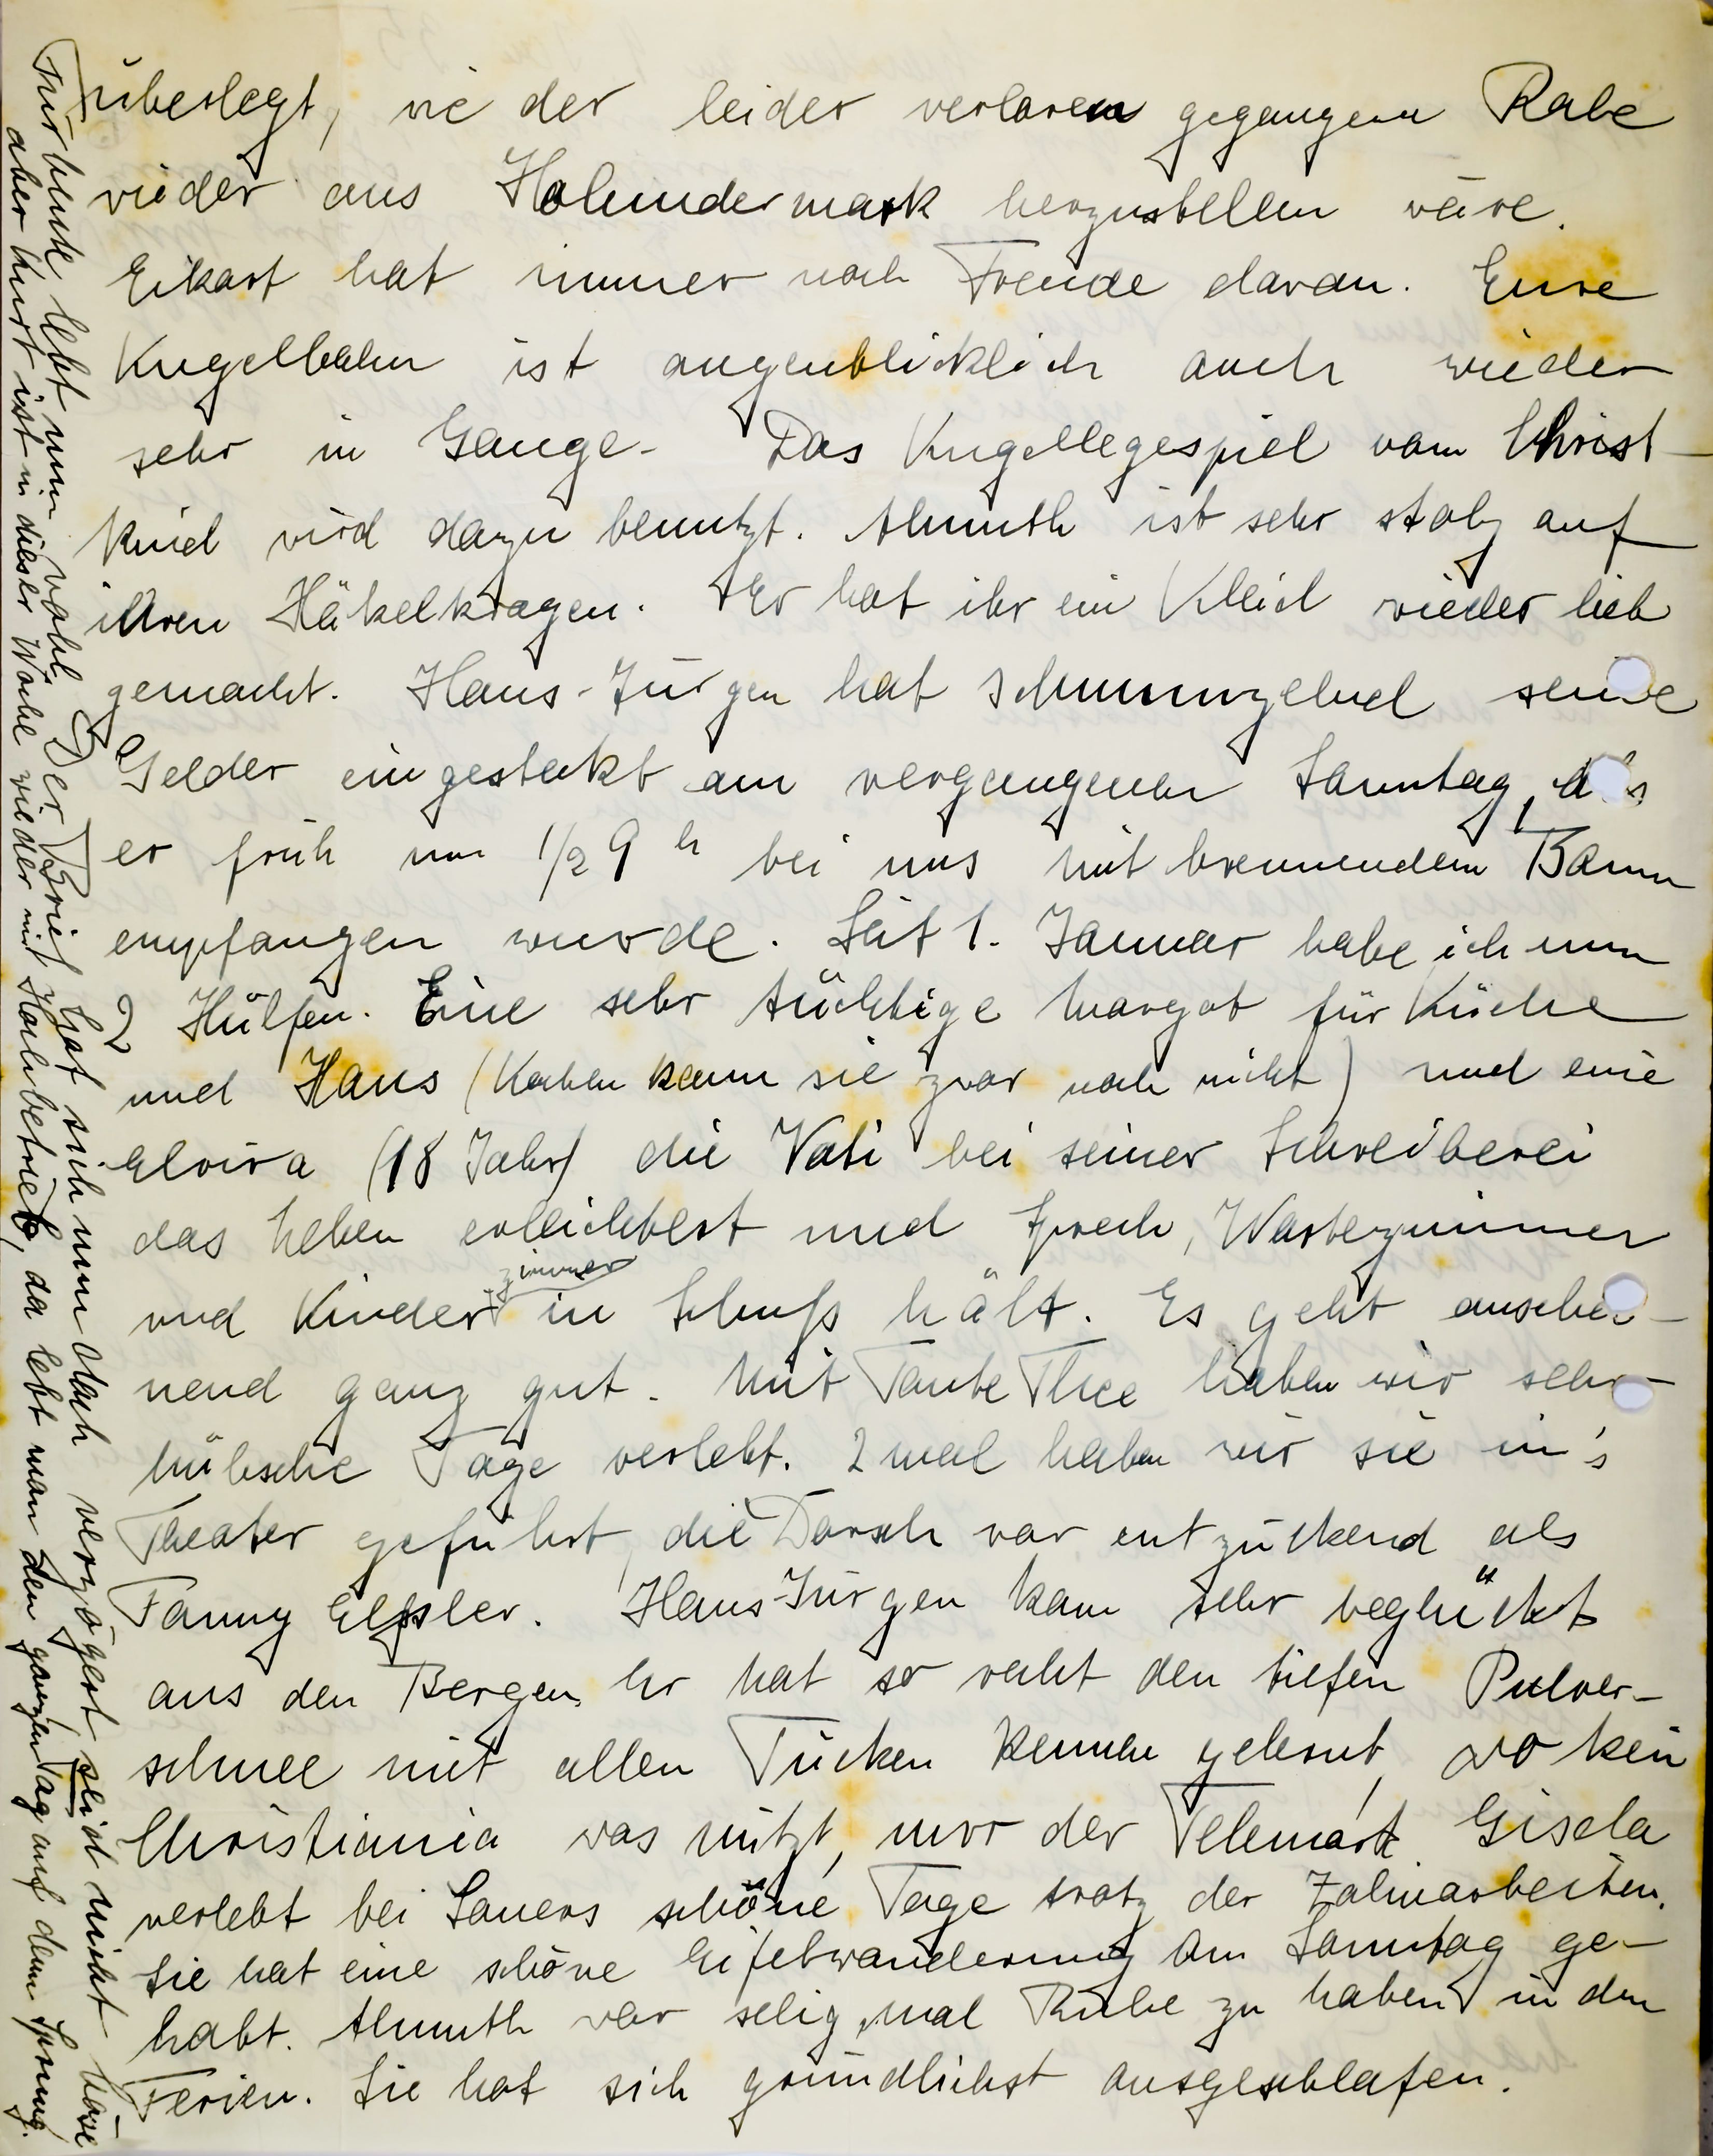 überlegt, wie der leider verloren gegangene Rabe
wieder aus Holundermark herzustellen wäre.
Eckart hat immer noch Freude daran. Eure
Kugelbahn ist augenblicklich auch wieder
sehr in Gange. Das Kugellegespiel vom Christ-
kind wird dazu benutzt. Almuth ist sehr stolz auf
ihren Häkelkragen. Er hat ihr ein Kleid wieder lieb
gemacht. Hans-Jürgen hat schmunzelnd seine
Gelder eingesteckt am vergangenen Sonntag, als
er früh um 1/2 9 h bei uns mit brennendem Baum
empfangen wurde. Seit 1. Januar habe ich nun
2 Hülfen. Eine sehr tüchtige Margot für Küche
und Haus (Kochen kann sie zwar noch nicht) und eine
Elvira (18 Jahr) die Vati bei seiner Schreiberei
das Leben erleichtert und Sprech, Wartezimmer
und Kinderzimmer in Schuß hält. Es geht anschei-
nend ganz gut. Mit Tante Thee haben wir sehr
hübsche Tage verlebt. 2 mal haben wir sie in's
Theater geführt, die Dorsch war entzückend als
Fanny Elßler. Hans-Jürgen kam sehr beglückt
aus den Bergen. Er hat so recht den tiefen Pulver-
schnee mit allen Tücken kennen gelernt, wo kein
Christiania was nützt, nur der Telemark. Gisela
verlebt bei Sauers schöne Tage trotz der Zahnarbeiten.
Sie hat eine schöne Eifelwanderung am Sonntag ge-
habt. Almuth war selig, mal Ruhe zu haben in den
Ferien. Sie hat sich gründlichst ausgeschlafen.
Für heute lebt nun wohl. Der Brief hat sich nun doch verzögert, seid nicht böse
aber Kurt ist in dieser Woche wieder mit Hochbetrieb, da lebt man den ganzen Tag auf dem Sprung.